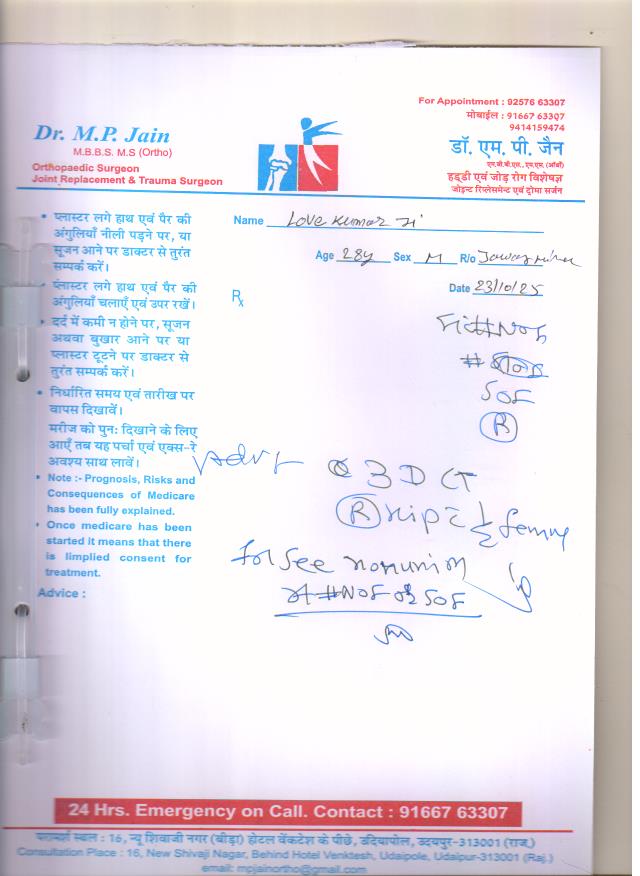 For Appointment : 92576 63307
मोबाईल : 91667 63307
9414159474
Dr. M.P. Jain
M.B.B.S. M.S (Ortho)
Orthopaedic Surgeon
Joint Replacement & Trauma Surgeon
डॉ. एम. पी. जैन
एम.बी.बी.एस., एम.एस. (ऑर्थो)
हड्डी एवं जोड़ रोग विशेषज्ञ
जोइन्ट रिप्लेसमेन्ट एवं ट्रोमा सर्जन
Name Love Kumar Ji
Age 28y Sex M R/o
Date 23/10/25
Rx
• प्लास्टर लगे हाथ एवं पैर की
अंगुलियाँ नीली पड़ने पर, या
सूजन आने पर डाक्टर से तुरंत
सम्पर्क करें।
• प्लास्टर लगे हाथ एवं पैर की
अंगुलियाँ चलाएँ एवं उपर रखें।
• दर्द में कमी न होने पर, सूजन
अथवा बुखार आने पर या
प्लास्टर टूटने पर डाक्टर से
तुरंत सम्पर्क करें।
• निर्धारित समय एवं तारीख पर
वापस दिखावें।
मरीज को पुनः दिखाने के लिए
आएँ तब यह पर्चा एवं एक्स-रे
अवश्य साथ लावें।
• Note :- Prognosis, Risks and
Consequences of Medicare
has been fully explained.
• Once medicare has been
started it means that there
is limplied consent for
treatment.
Advice :
# NOF
#
SOF
R
Adv
3D CT
R Hip c 1/2 femur
for see nonunion
# NOF & SOF
24 Hrs. Emergency on Call. Contact : 91667 63307
परामर्श स्थल : 16, न्यू शिवाजी नगर (बीड़ा) होटल वेंकटेश के पीछे, उदियापोल, उदयपुर-313001 (राज.)
Consultation Place : 16, New Shivaji Nagar, Behind Hotel Venktesh, Udaipole, Udaipur-313001 (Raj.)
email: mpjainortho@gmail.com